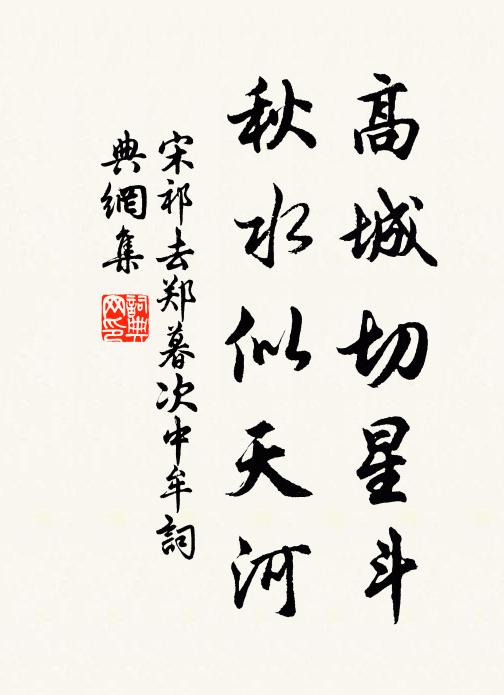 高城切星斗
秋水似天河
宋祁去郑暮次中牟詞
典網集
詞典
网印